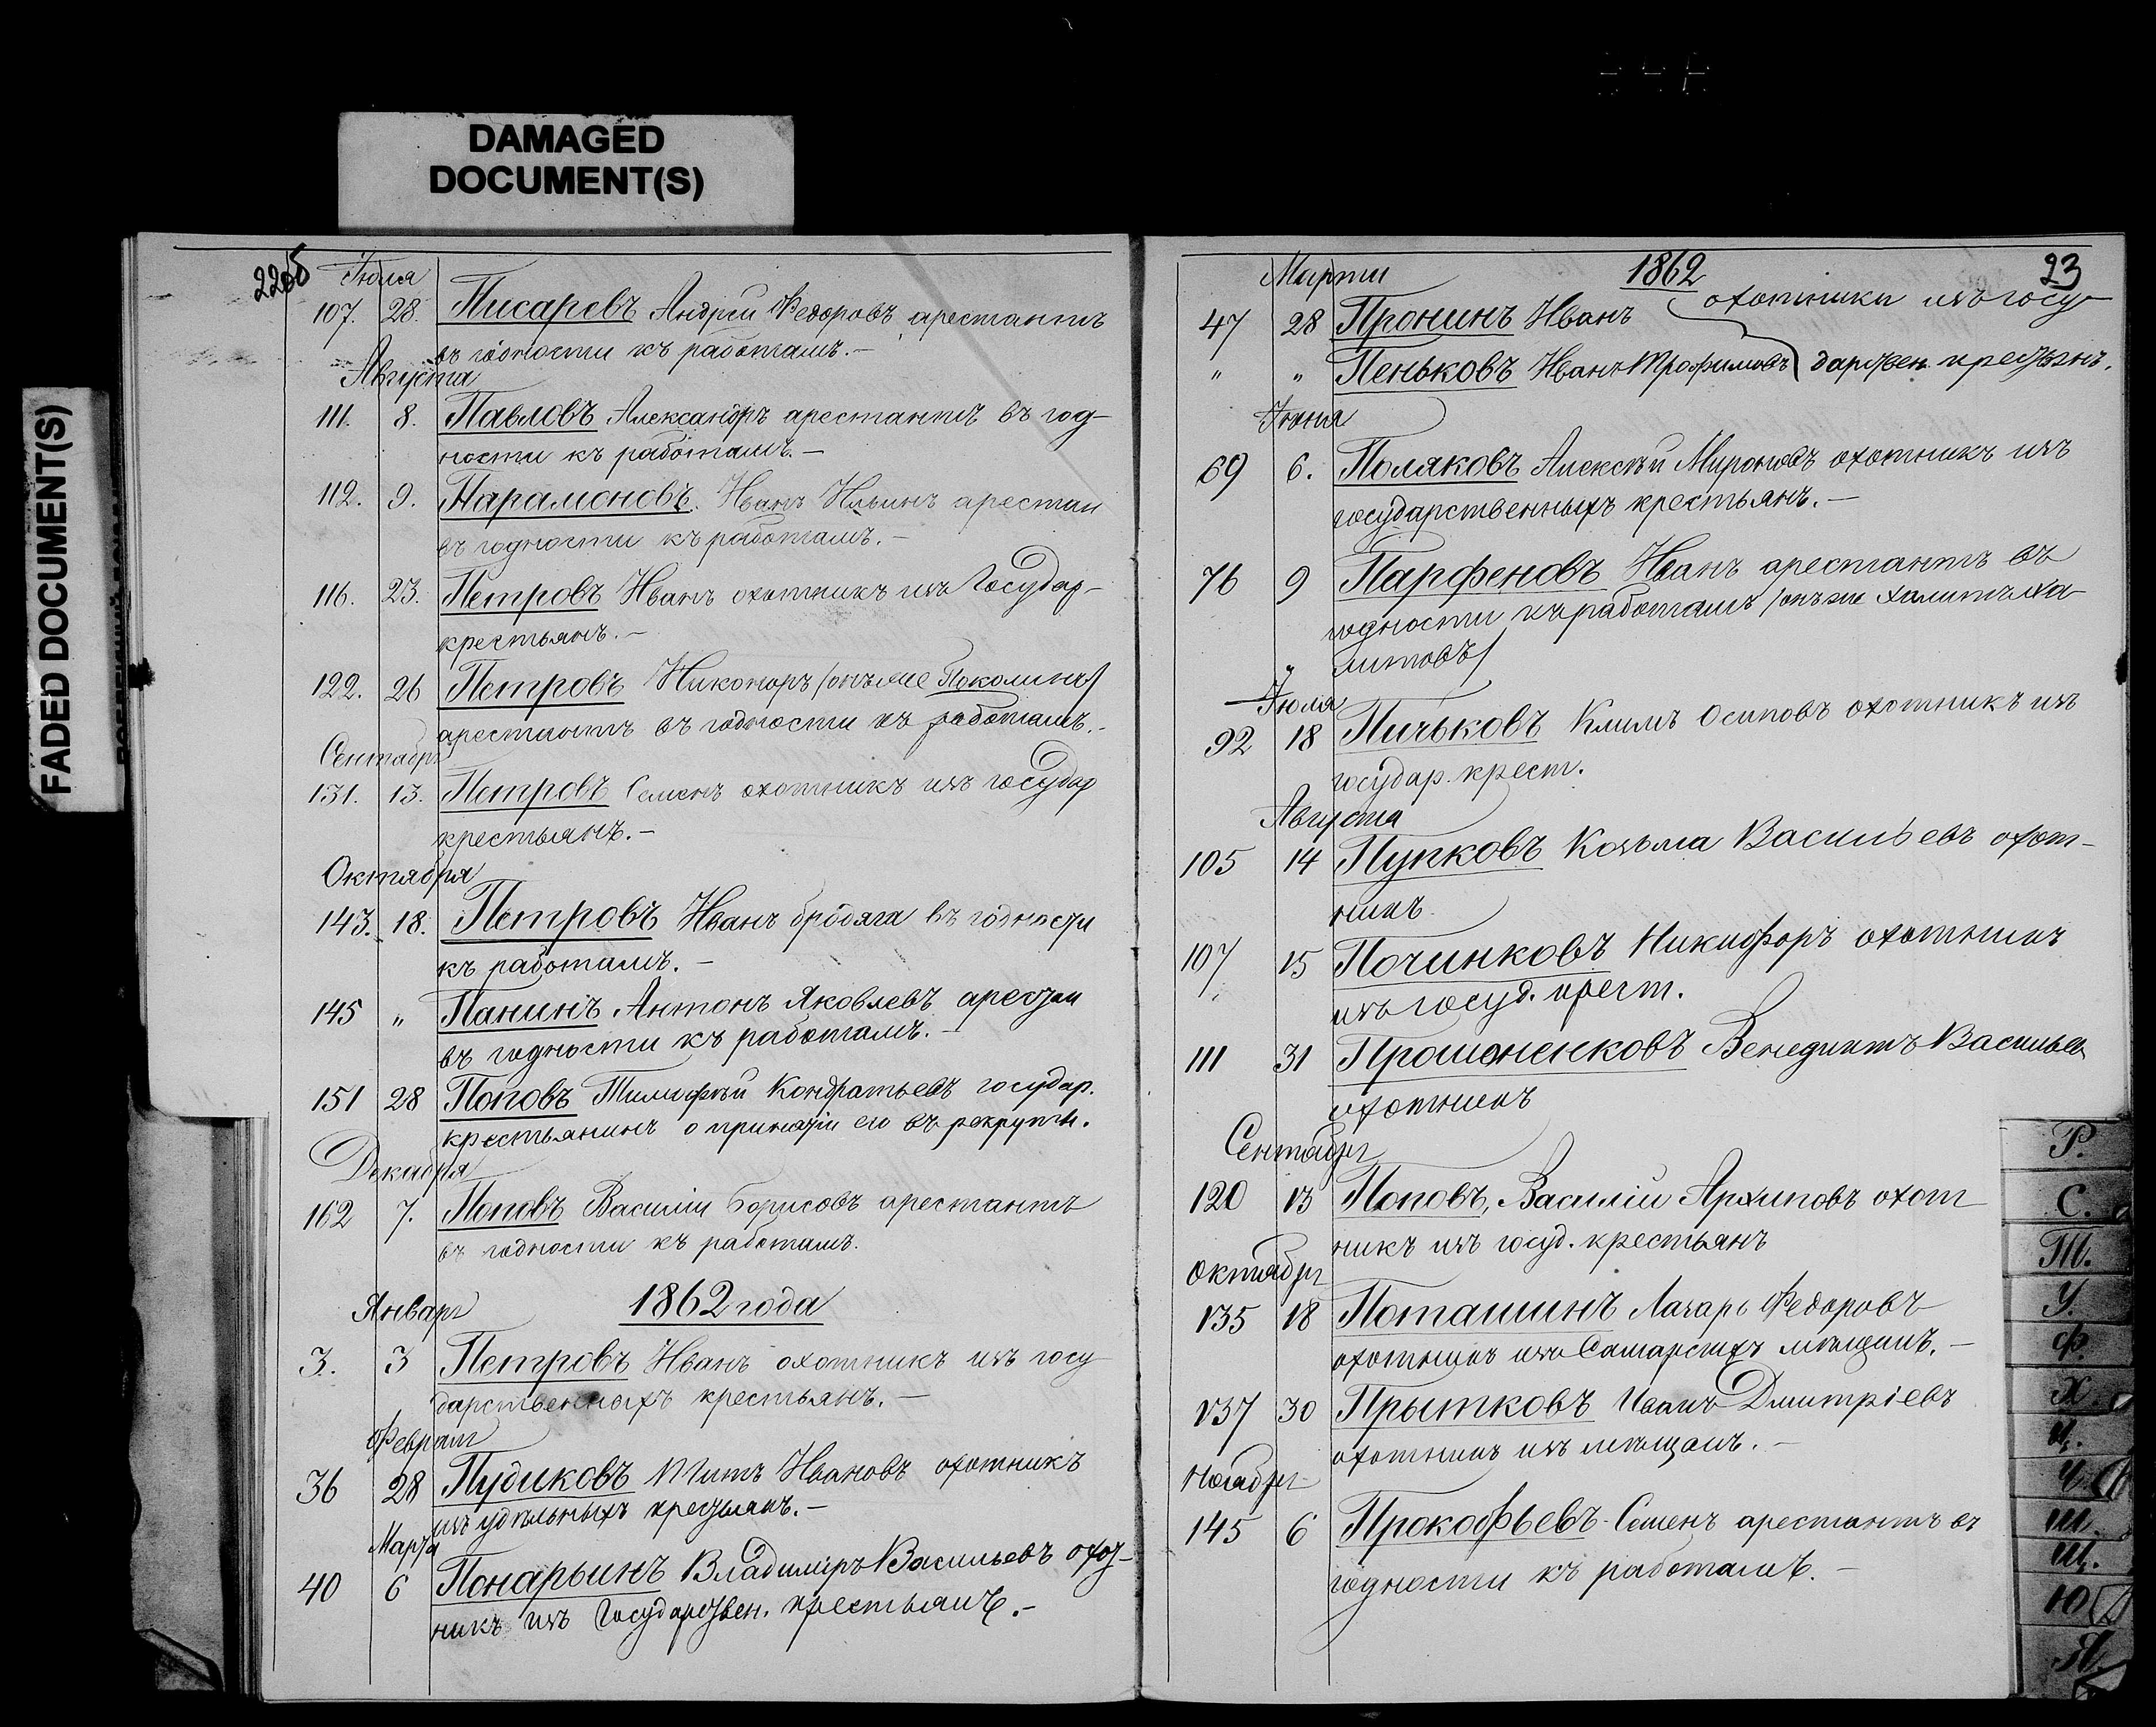 DAMAGED
DOCUMENT(S)
FADED DOCUMENT(S)
Іюля
107. 28. Писаревъ Андрей Федоровъ арестантъ
въ годности къ работамъ.—
Августа
111. 8. Павловъ Александръ арестантъ въ год-
ности къ работамъ.—
112. 9. Парамоновъ. Иванъ Ильинъ арестан
въ годности къ работамъ.—
116. 23. Петровъ Иванъ охотникъ изъ Государ-
крестьянъ.—
122. 26 Петровъ Никоноръ /онъ же
арестантъ въ годности къ работамъ.-
Сентября
131. 13. Петровъ Семенъ охотникъ изъ государ
крестьянъ.—
Октября
143. 18. Петровъ Иванъ бродяга въ годности
къ работамъ.—
145 „ Панинъ Антонъ Яковлевъ арестан
въ годности къ работамъ.—
151 28 Поповъ Тимофѣй Кондратьевъ государ.
крестьянинъ о принятіи его въ рекруты.
Декабря
162 7. Поповъ Василій Борисовъ арестантъ
въ годности къ работамъ.
1862 года
Январь
3. 3 Петровъ Иванъ охотникъ изъ госу
дарственныхъ крестьянъ.—
Февраль
36 28 Пудиковъ Титъ Ивановъ охотникъ
изъ удѣльныхъ крестьянъ.—
Марта
40 6 Понарьинъ Владиміръ Васильевъ охот-
никъ изъ Государствен. крестьянъ.—
1862
23
Марта
47 28 Пронинъ Иванъ охотники изъ госу-
„ „ Пеньковъ Иванъ Трофимовъ дарствен. крестьянъ.
Іюня
69 6. Поляковъ Алексѣй Мироновъ охотникъ изъ
государственныхъ крестьянъ.—
76 9 Парфеновъ Иванъ арестантъ въ
годности къ работамъ /онъ же
литовъ/
Іюля
92 18 Пичьковъ Климъ Осиповъ охотникъ изъ
государ. крест.
Августа
105 14 Пупковъ Козьма Васильевъ охот-
никъ
107 15 Починковъ Никифоръ охотникъ
изъ госуд. крест.
111 31 Венедиктъ Васильев
охотникъ
Сентябрь
120 13 Поповъ, Василій Архиповъ охот
никъ изъ госуд. крестьянъ
Октябрь
135 18 Поташинъ Лазарь Федоровъ
охотникъ изъ Самарскихъ мѣщанъ.—
137 30 Прытковъ Иванъ Дмитріевъ
охотникъ изъ мѣщанъ.—
Ноябрь
145 6 Прокофьевъ Семенъ арестантъ въ
годности къ работамъ.—
Р.
С.
Т.
У.
Ф.
Х
Ц.
Ч.
Ш.
Щ.
Ю
Я.